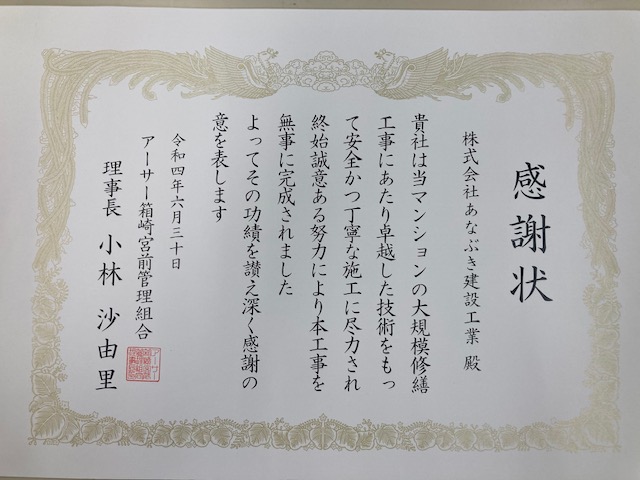 感謝状
株式会社あなぶき建設工業 殿
貴社は当マンションの大規模修繕
工事にあたり卓越した技術をもっ
て安全かつ丁寧な施工に尽力され
終始誠意ある努力により本工事を
無事に完成されました
よってその功績を讃え深く感謝の
意を表します
令和四年六月三十日
アーサー箱崎宮前管理組合
理事長 小林 沙由里